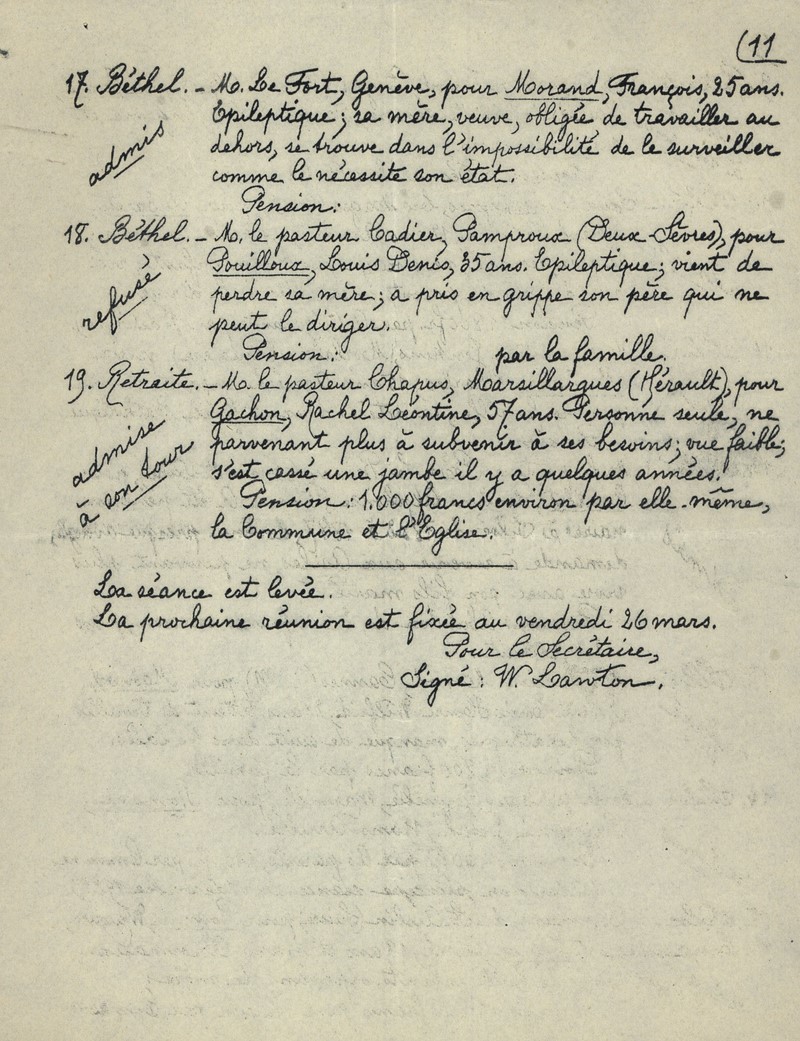 (11
17. Béthel. - M. Le Fort, Genève, pour Morand, François, 25 ans.
Epileptique; sa mère, veuve, obligée de travailler au
admis
dehors, se trouve dans l'impossibilité de le surveiller
comme le nécessite son état.
Pension:
18. Béthel. - M. le pasteur Cadier, Pamproux (Deux-Sèvres), pour
Pouilloux, Louis Denis, 35 ans. Epileptique; vient de
refusé
perdre sa mère; a pris en grippe son père qui ne
peut le diriger.
Pension: par la famille.
19. Retraite. - M. le pasteur Chapus, Marsillargues (Hérault), pour
Gachon, Rachel Léontine, 57 ans. Personne seule, ne
admise
parvenant plus à subvenir à ses besoins; vue faible;
à son tour
s'est cassé une jambe il y a quelques années.
Pension: 1.000 francs environ par elle-même,
la Commune et l'Eglise.
La séance est levée.
La prochaine réunion est fixée au vendredi 26 mars.
Pour le Secrétaire,
Signé: W. Lawton.